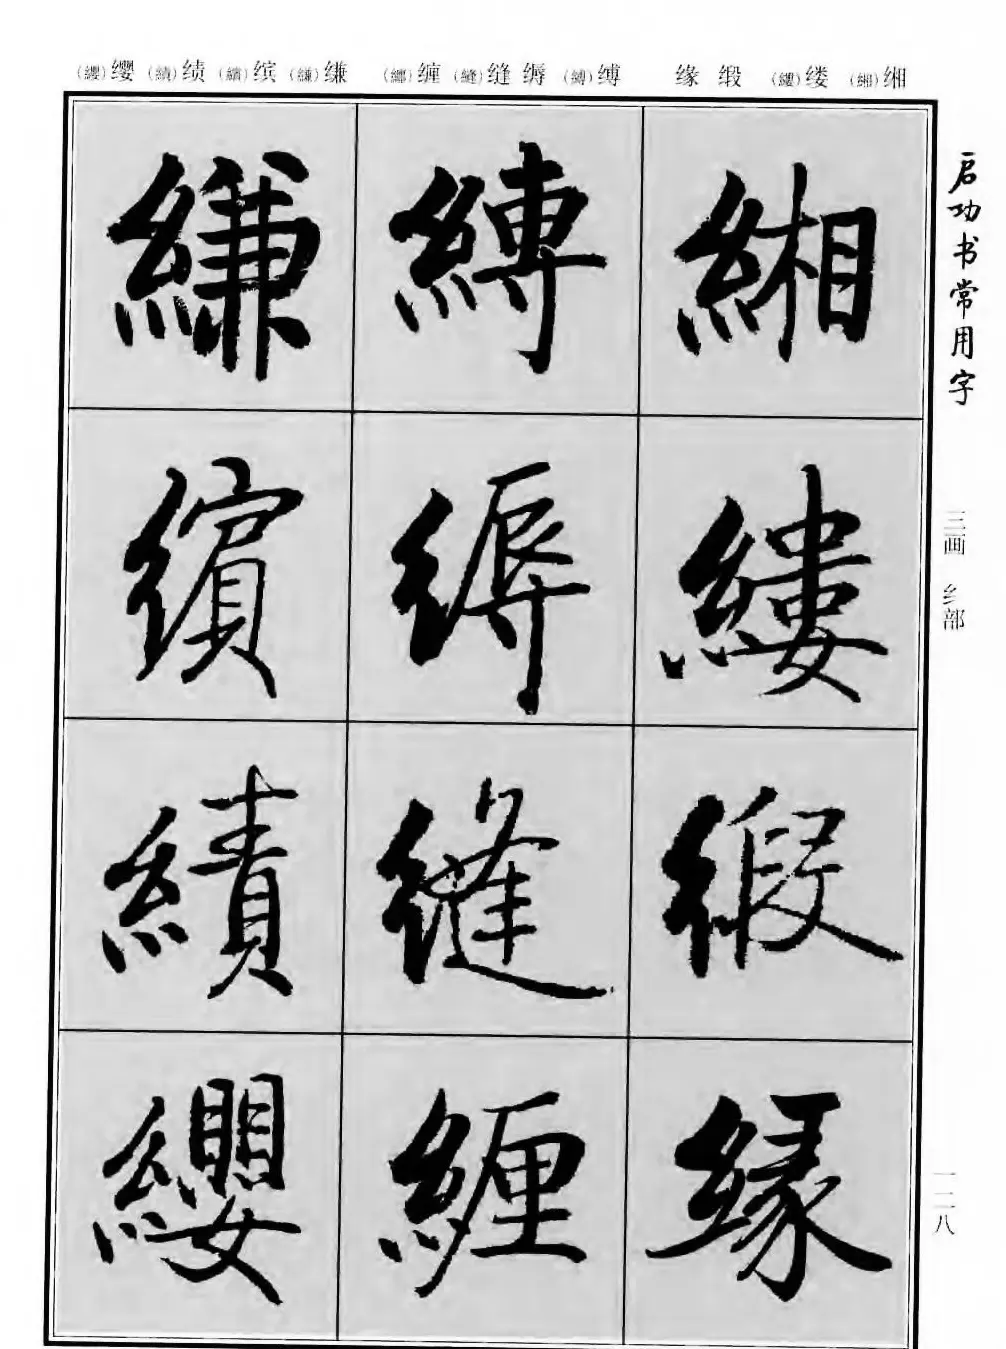 (纓)缨 (績)绩 (繽)缤 (縑)缣 (纏)缠 (縫)缝 缛 (縛)缚 缘 缎 (縷)缕 (緗)缃
启功书常用字
三画 纟部
一二八
緗
縷
緞
緣
縛
縟
縫
纏
縑
繽
績
纓